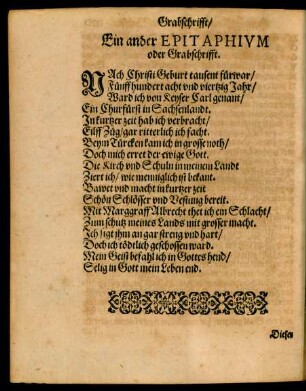 Grabschrifft/
Ein ander EPITAPHIVM
oder Grabschrifft.
NAch Christi Geburt tausent fürwar/
Fünff hundert acht vnd viertzig Jahr/
Ward ich von Keyser Carl genant/
Ein Churfürst in Sachsenland.
In kurtzer zeit hab ich verbracht/
Eilff Züg/gar ritterlich ich facht.
Beym Türcken kam ich in grosse noth/
Doch mich erret der ewige Gott.
Die Kirch vnd Schuln in meinem Landt
Ziert ich/wie menniglich ist bekant.
Bawet vnd macht in kurtzer zeit
Schön Schlösser vnd Vestung bereit.
Mit Marggraff Albrecht thet ich ein Schlacht/
Zum schutz meines Lands mit grosser macht.
Ich sigt ihm an gar streng vnd hart/
Doch ich tödtlich geschossen ward.
Mein Geist befahl ich in Gottes hend/
Selig in Gott mein Leben end.
Dieses